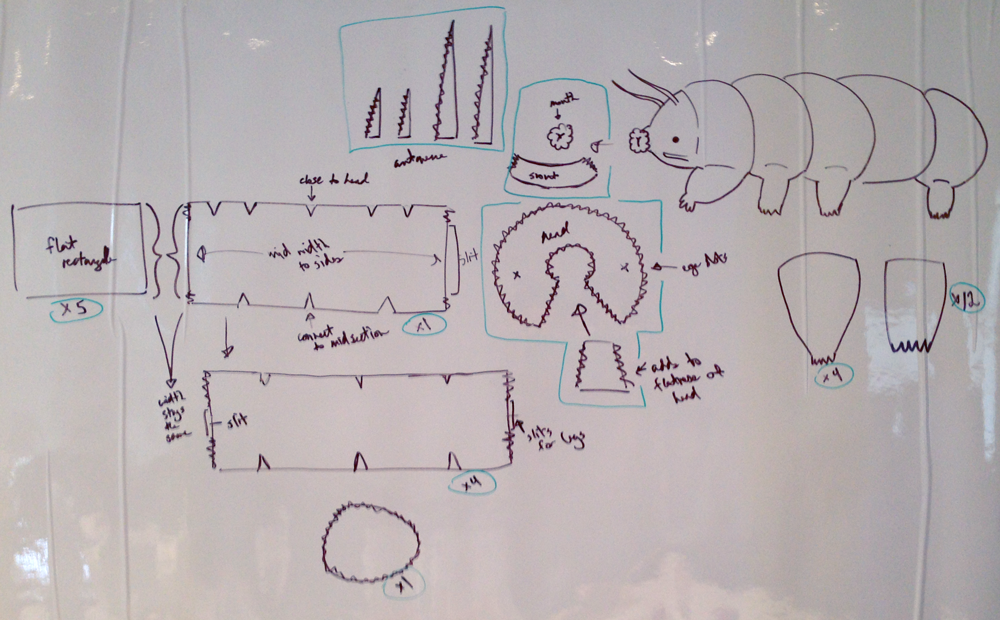 antennae
mouth
snout
close to head
flat
rectangle
x5
mid width
to sides
slit
connect
to midsection
x1
head
x
x
adds to
flatbase of
head
width
stays
the
same
slit
slits
for legs
x4
x4
x12
x1